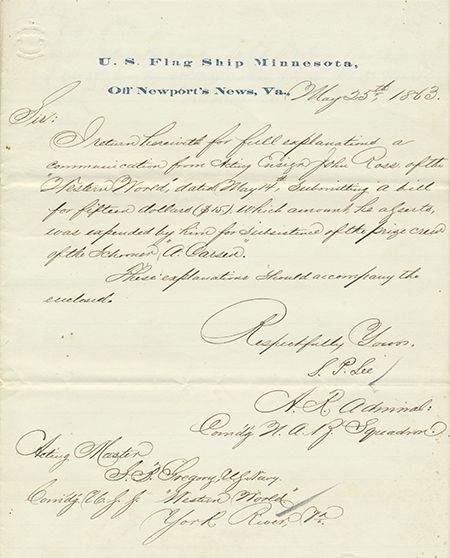 U. S. Flag Ship Minnesota,
Off Newport's News, Va., May 25th 1863.
Sir:
I return herewith for full explanations a
communication from Acting Ensign John Ross of the
"Western World", dated May 4th, submitting a bill
for fifteen dollars ($15), which amount, he asserts,
was expended by him for subsistence of the prize crew
of the Schooner "A. Carson".
These explanations should accompany the
enclosed.
Respectfully Yours.
S. P. Lee
A. R. Admiral:
Comd'g N. A. B. Squadron.
Acting Master
S. B. Gregory, U.S. Navy.
Comd'g U. S. S. "Western World"
York River, Va.